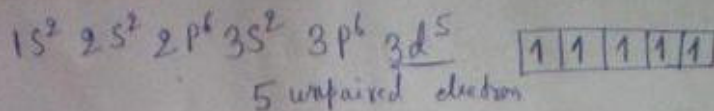 1S² 2S² 2P⁶ 3S² 3P⁶ 3d⁵ 1 1 1 1 1
5 unpaired electron